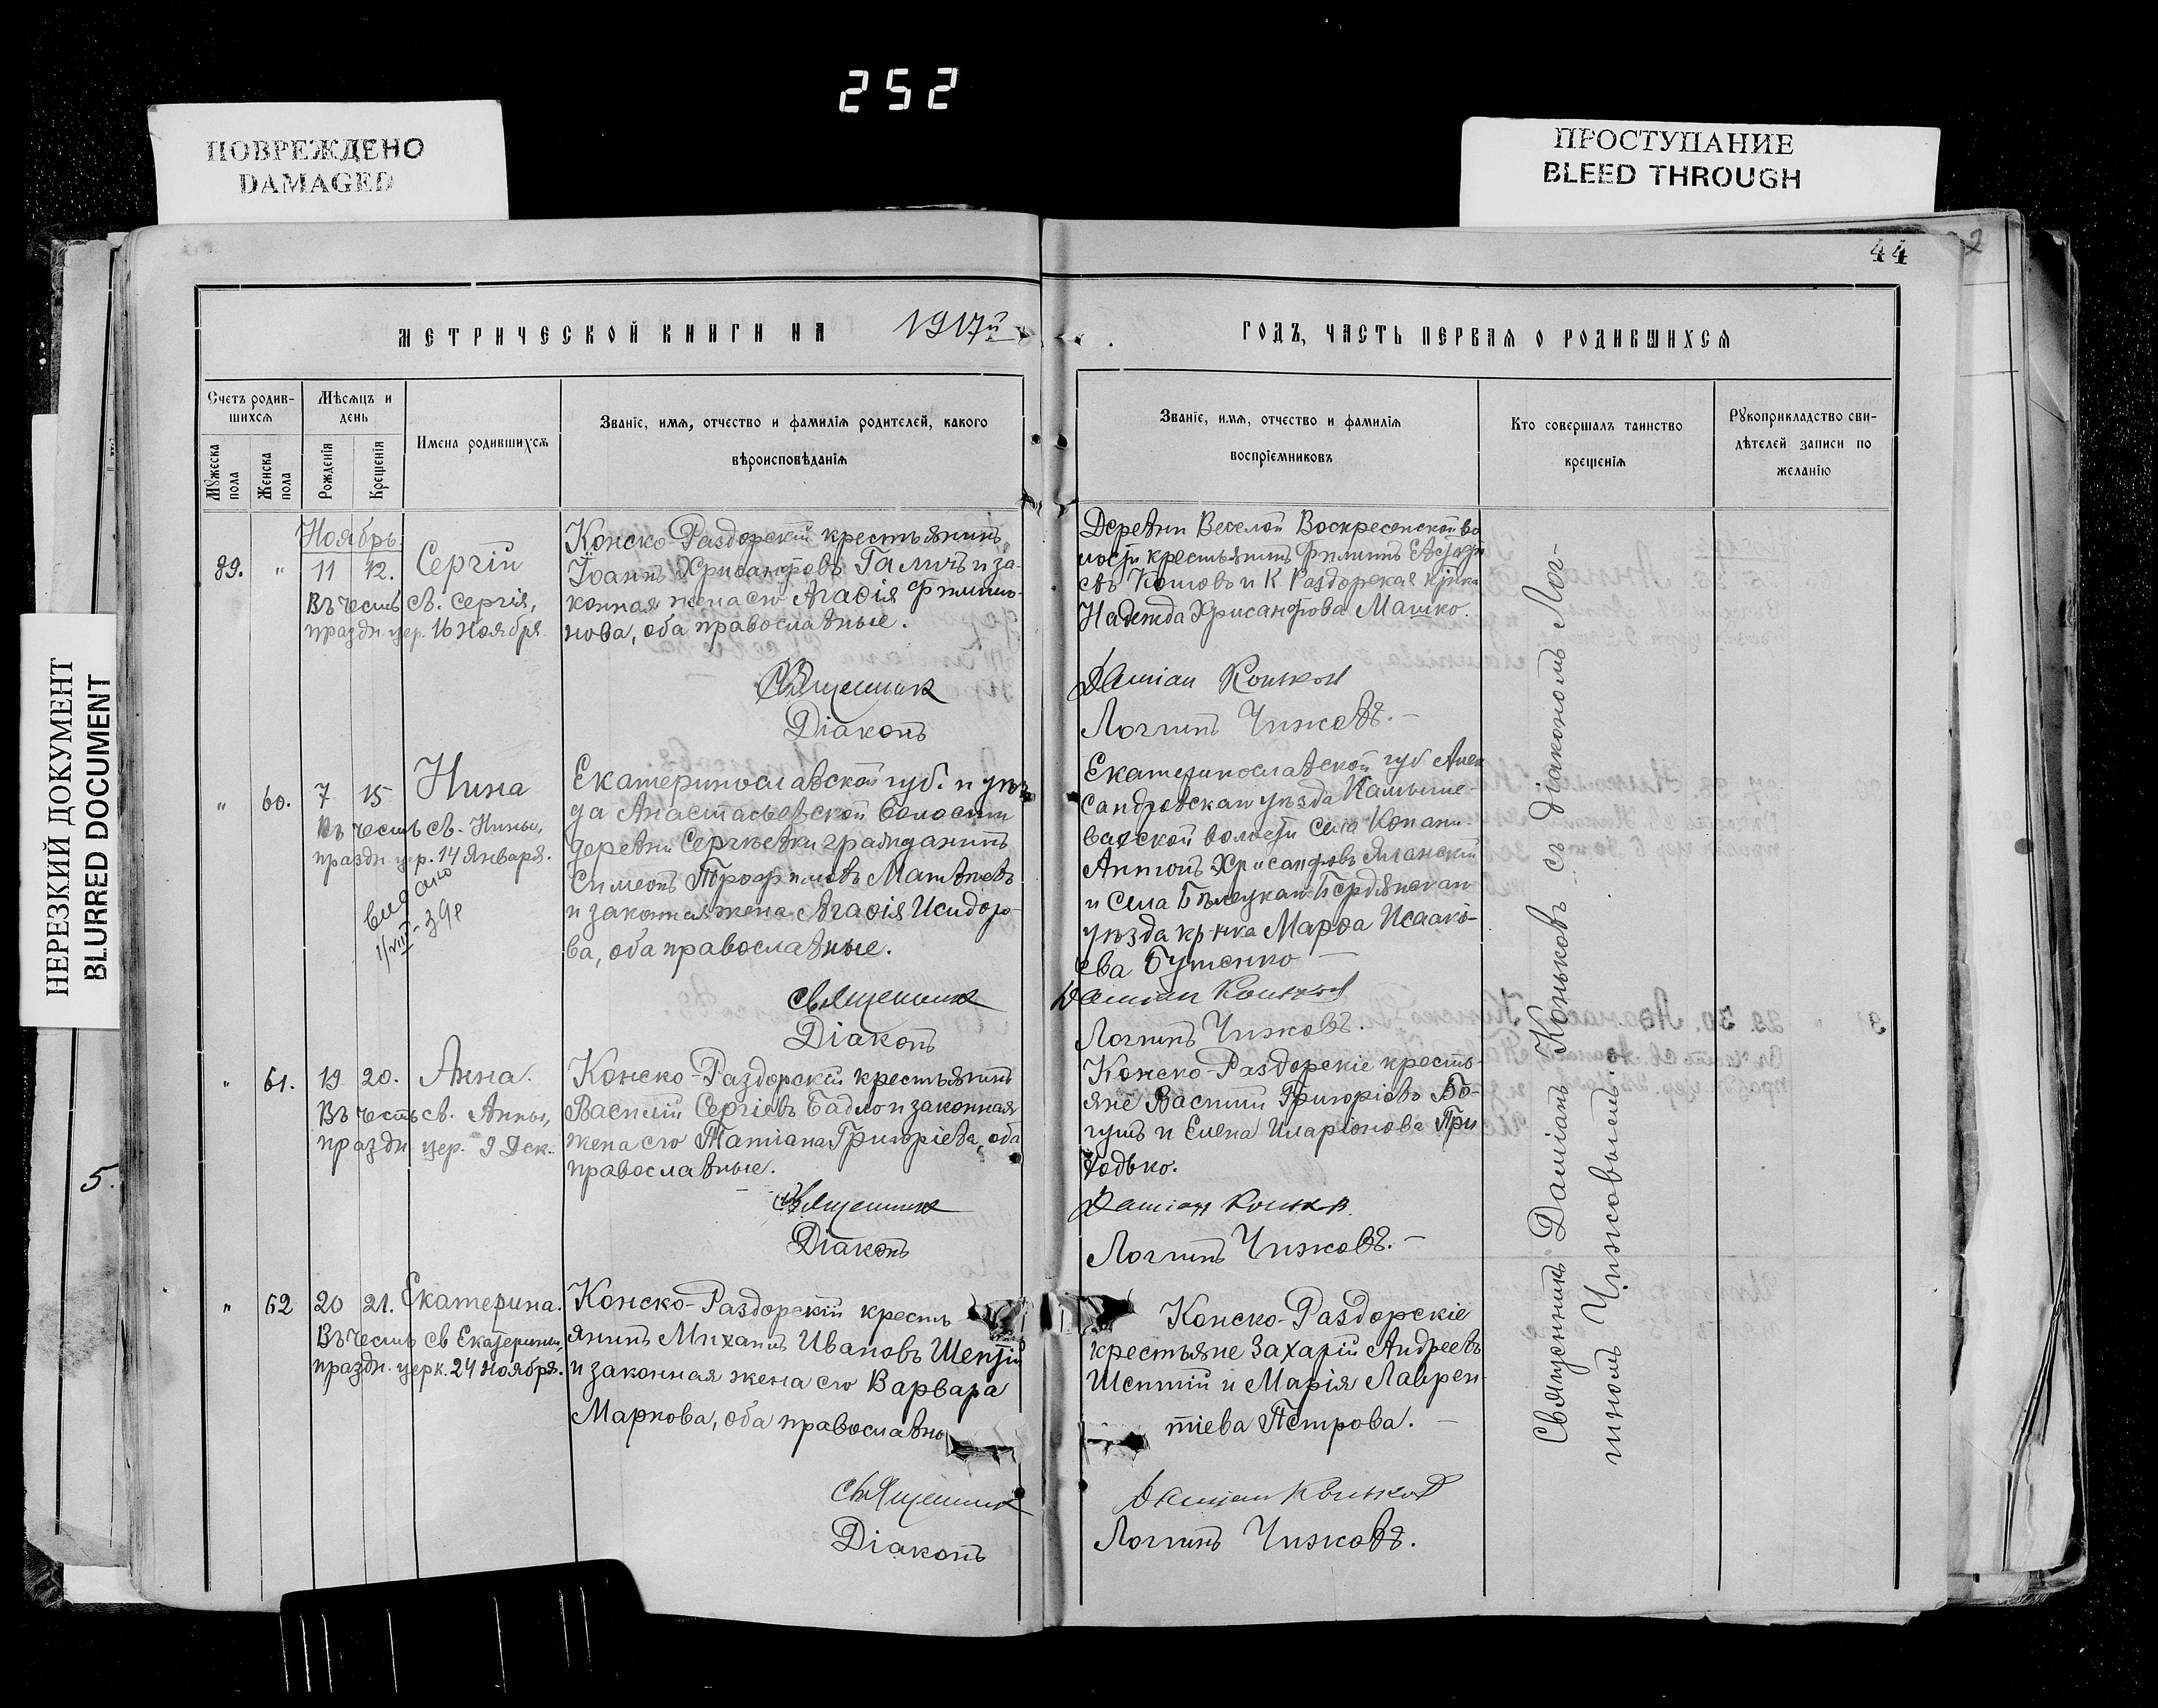 252
ПОВРЕЖДЕНО
DAMAGED
ПРОСТУПАНИЕ
BLEED THROUGH
НЕРЕЗКИЙ ДОКУМЕНТ
BLURRED DOCUMENT
44
2
5.
МЕТРИЧЕСКОЙ КНИГИ НА 1917й
ГОДЪ, ЧАСТЬ ПЕРВАЯ О РОДИВШИХСЯ
Счетъ родив-
шихся
Мужеска
пола
Женска
пола
Мѣсяцъ и
день
Рожденія
Крещенія
Имена родившихся
Званіе, имя, отчество и фамилія родителей, какого
вѣроисповѣданія
Званіе, имя, отчество и фамилія
воспріемниковъ
Кто совершалъ таинство
крещенія
Рукоприкладство сви-
дѣтелей записи по
желанію
Ноябрь.
89. " 11 12. Сергій
Въ честь св. Сергія,
праздн. цер. 16 Ноября.
Конско-Раздорскій крестьянинъ
Іоаннъ Хрисанфовъ Галичъ и за-
конная жена его Агафія Филимо-
нова, оба православные.
Священник
Діаконъ
Деревни Веселой Воскресенской во
лости крестьянинъ Филиппъ
и К. Раздорская
Надежда Хрисанфова Машко.
Даміан Коньков
Логгинъ Чижовъ.-
" 60. 7 15 Нина
Въ честь св. Нины,
праздн. цер. 14 Января.
Видано
1/VIII-39р
Екатеринославской губ. и уѣз
да Анастасьевской волости
деревни Сергѣевки гражданинъ
Симеонъ Трофимовъ Матвѣевъ
и законная жена Агафія Исидоро-
ва, оба православные.
Священник
Діаконъ
Екатеринославской губ Алек
сандровскаго уѣзда Камыше-
ватской волости села Копани
Антонъ Хрисанфовъ
и села Бѣлецкаго Бердянскаго
уѣзда кр-нка Марфа Исаакі-
ева Бутенко —
Даміан Коньков
Логгинъ Чижовъ.
" 61. 19 20. Анна.
Въ честь св. Анны,
праздн. цер. 9 Дек.
Конско-Раздорскій крестьянинъ
Василій Сергіевъ Бадло и законная
жена его Татіана Григоріева, оба
православные.
Священник
Діаконъ
Конско-Раздорскіе кресть-
яне Василій Григоріевъ Бо-
гушъ и Елена Иларіонова При
ходько.
Даміан Коньков
Логгинъ Чижовъ.-
" 62 20 21. Екатерина.
Въ честь св Екатерины,
праздн. церк. 24 Ноября.
Конско-Раздорскій кресть
янинъ Михаилъ Ивановъ Шептій
и законная жена его Варвара
Маркова, оба православны
Священник
Діаконъ
Конско-Раздорскіе
крестьяне Захарій Андреевъ
Шептій и Марія Лаврен-
тіева Петрова. —
Даміан Коньков
Логгинъ Чижовъ.
Священникъ Даміанъ Коньковъ съ діакономъ Лог-
гиномъ Чижовымъ.